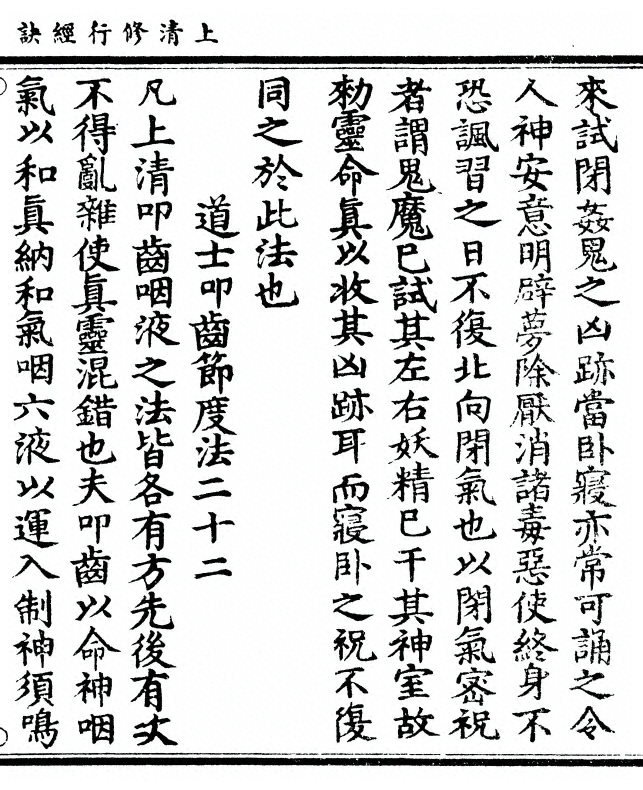 上清修行經訣
來試閉姦鬼之凶跡當臥寢亦常可誦之令
人神安意明辟夢除厭消諸毒惡使終身不
恐諷習之日不復北向閉氣也以閉氣密祝
者謂鬼魔已試其左右妖精已干其神室故
勑靈命真以收其凶跡耳而寢臥之祝不復
同之於此法也
道士叩齒節度法二十二
凡上清叩齒咽液之法皆各有方先後有次
不得亂雜使真靈混錯也夫叩齒以命神咽
氣以和真納和氣咽六液以運入制神須鳴